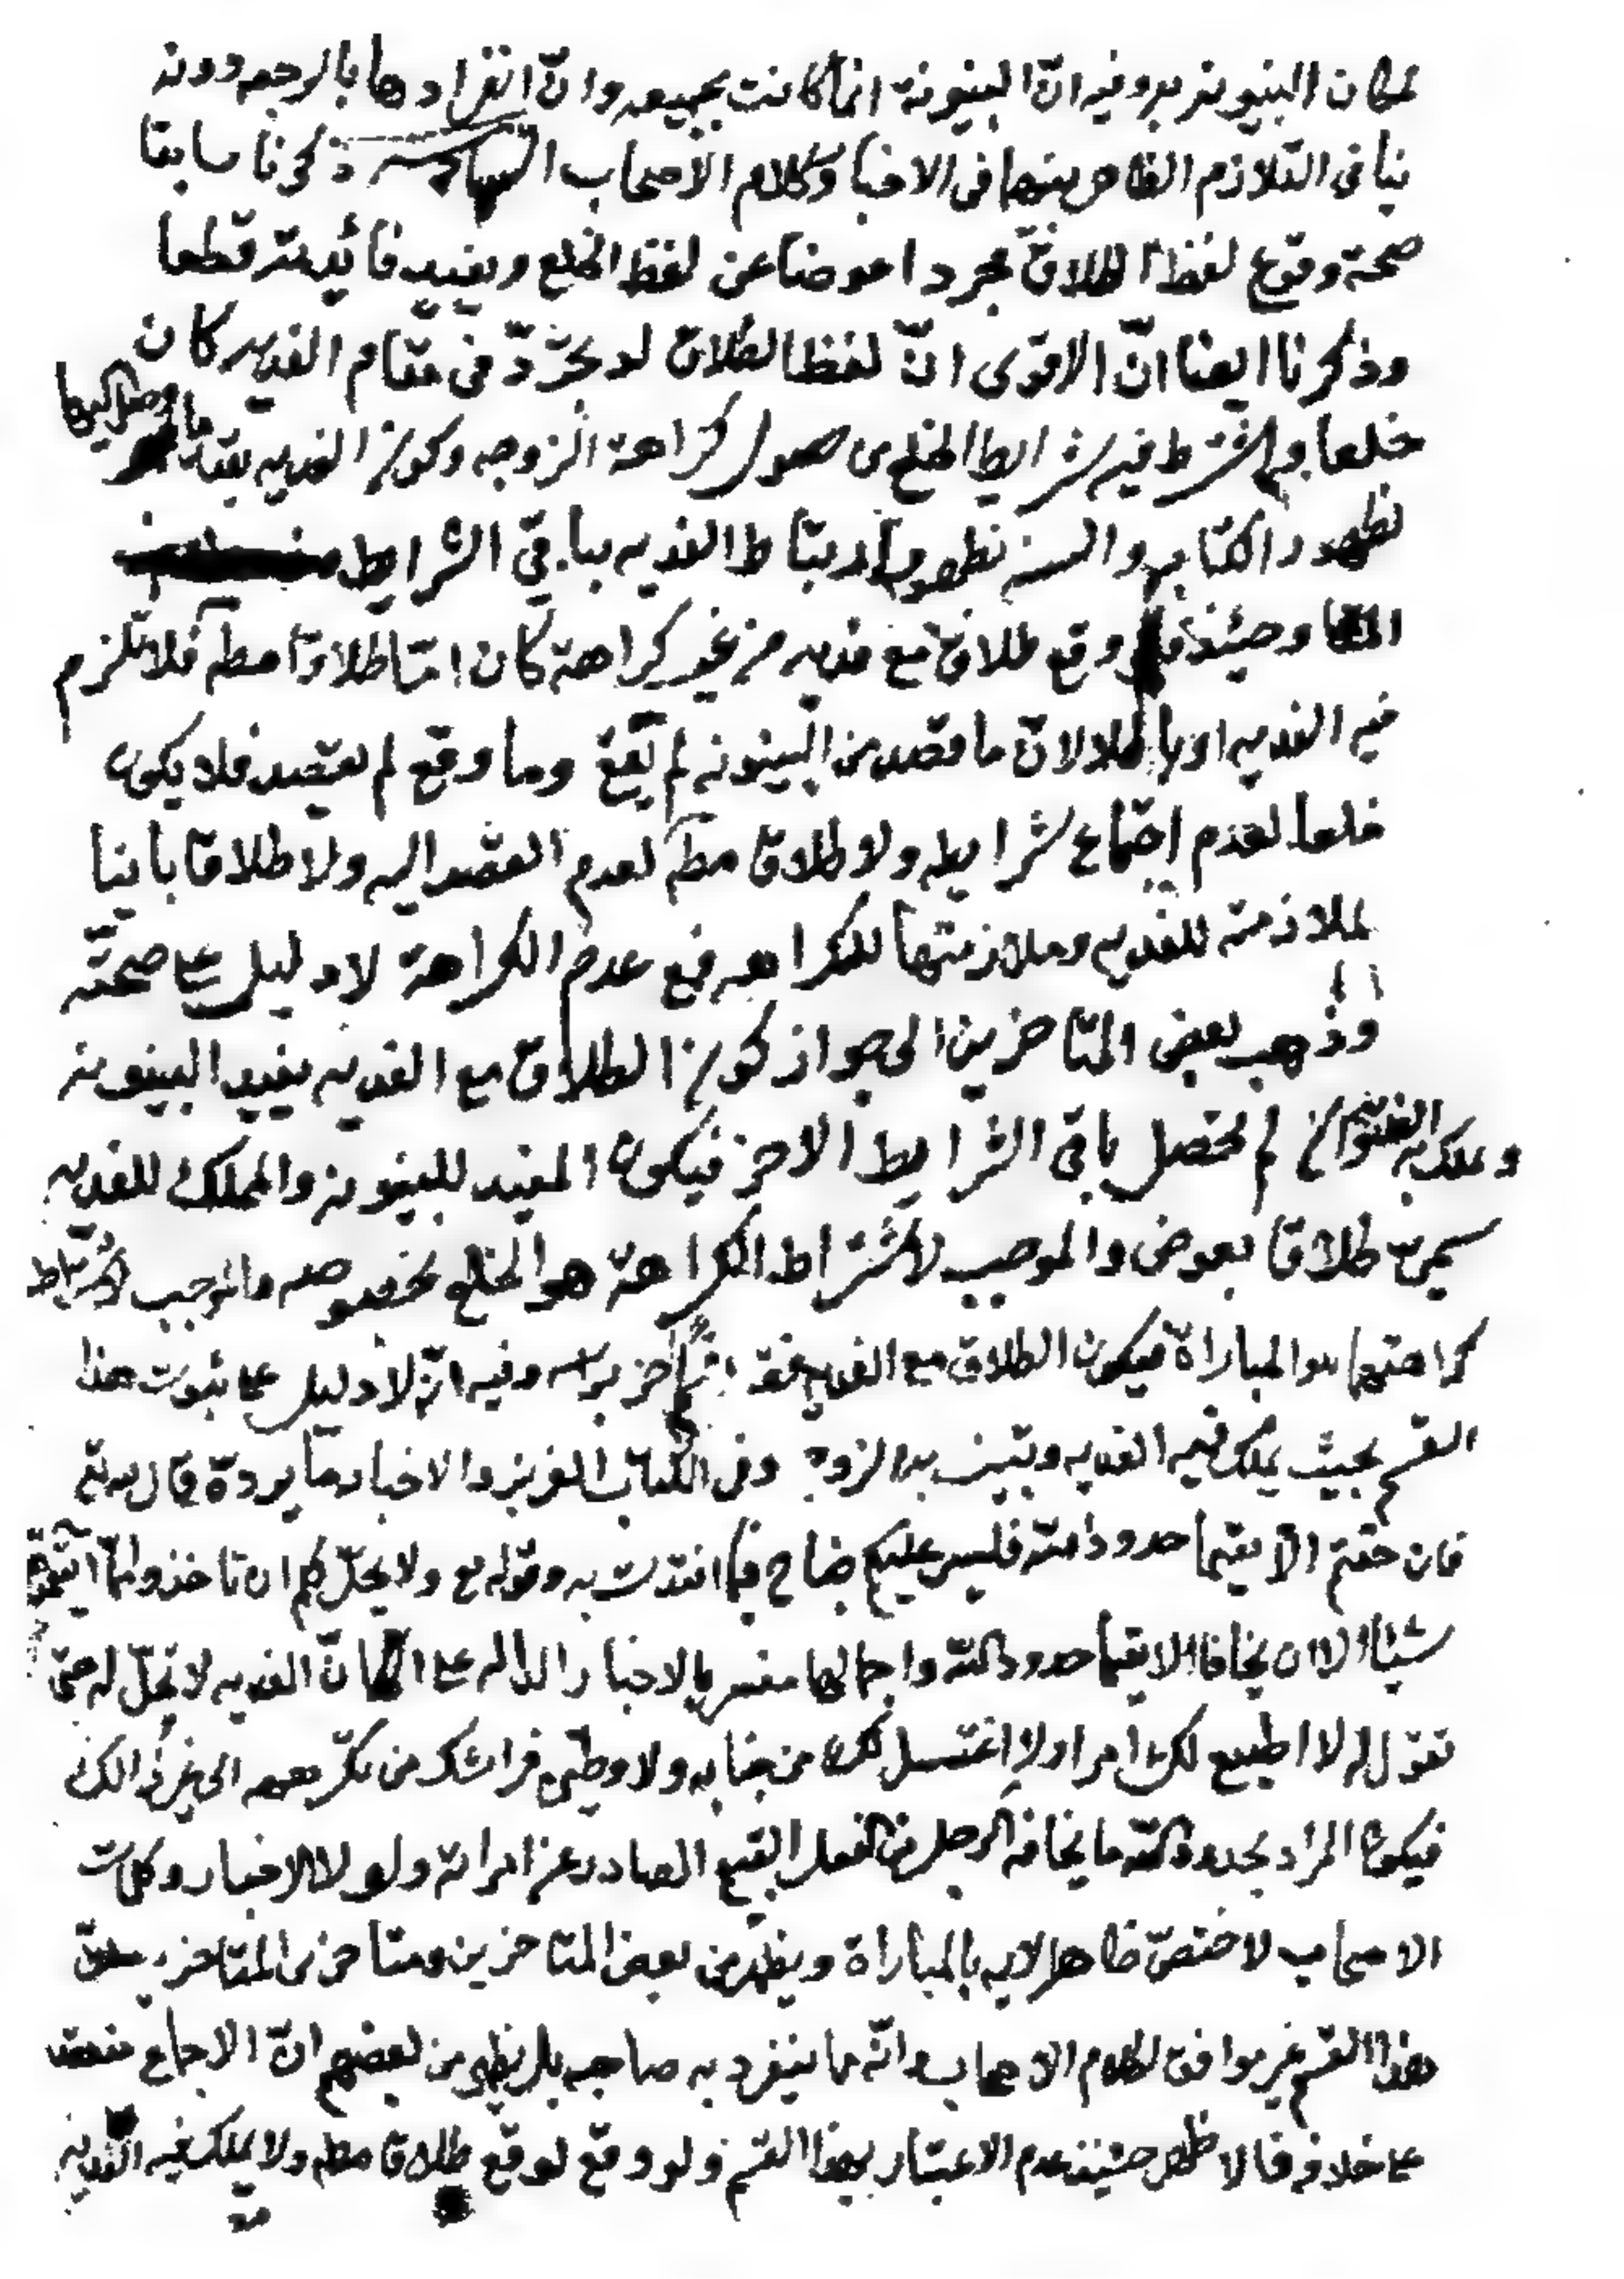 لمكان البينونة به وفيه انّ البينونة انما كانت بجميعه وانّ انفرادها بالرجعه دونه
ينافى التلازم الظاهر بينهما فى الاخبا وكلام الاصحاب ذكرنا سابقا
صحة وقوع لفظ الطلاق مجردا عوضا عن لفظ الخلع ويفيد فائدته قطعا
وذكرنا ايضا انّ الاقوى انّ لفظ الطلاق لو تجرّد فى مقام الفديه كان
خلعا ويشترط فيه شرايط الخلع من حصول كراهة الزوجه وكون الفديه بقدر ما وصل اليها
لظهور الكتاب والسنه بظهور ارتباط الفديه بباقى الشرايط
وحينئذ فلو وقع طلاق مع فديه من غير كراهة كان امّا طلاقا مطلقا فلا تلزم
فيه الفديه او باطلا لانّ ما قصد من البينونه لم يقع وما وقع لم يقصد فلا يكون
خلعا لعدم اجتماع شرايطه ولا طلاقا مطلقا لعدم القصد اليه ولا طلاقا باينا
لملازمته للفديه وملازمتها للكراهه فمع عدم الكراهة لا دليل على صحته
وذهب بعض المتاخرين الى جواز كون الطلاق مع الفديه يفيد البينونه
وتملك به الفديه وان لم تحصل باقى الشرايط الاخر فيكون المفيد للبينونه والمملك للفديه
يسمى طلاقا بعوض والموجب لاشتراط الكراهة هو الخلع بخصوصه والموجب لاشتراط
كراهتهما هو المباراة فيكون الطلاق مع الفديه عقدا اخر براسه وفيه انّه لا دليل على ثبوت هذا
القسم بحيث يملك فيه الفديه وتبين به الزوجه وفى الكتاب العزيز والاخبار ما يردّه قال الله تع
فان خفتم الّا يقيما حدود الله فليس عليكم جناح فيما افتدت به وقوله تع ولا يحلّ لكم ان تاخذوا ممّا آتيتموهنّ
شيئا الا ان يخافا الا يقيما حدود الله واجمالها مفسر بالاخبار الداله على انّ الفديه لا تحلّ له حتى
تقول له لا اطيع لك امرا ولا اغتسل لك من جنابه ولا وطيىء فراشك من تكرهه الى غير ذلك
فيكون المراد بحدود الله ما يخافه الرجل من الفعل القبيح الصادر عن امراته ولولا الاخبار وكلمات
الاصحاب لاختصّ ظاهر الايه بالمباراة ويظهر من بعض المتاخرين ومتاخرى المتاخرين
هذا القسم غير موافق لكلام الاصحاب وانّه مما ينفرد به صاحبه بل يظهر من بعضهم انّ الاجماع منعقد
على خلافه فالاظهر حينئذ عدم الاعتبار بهذا القسم ولو وقع لوقع طلاقا مطلقا ولا يملك فيه الفديه